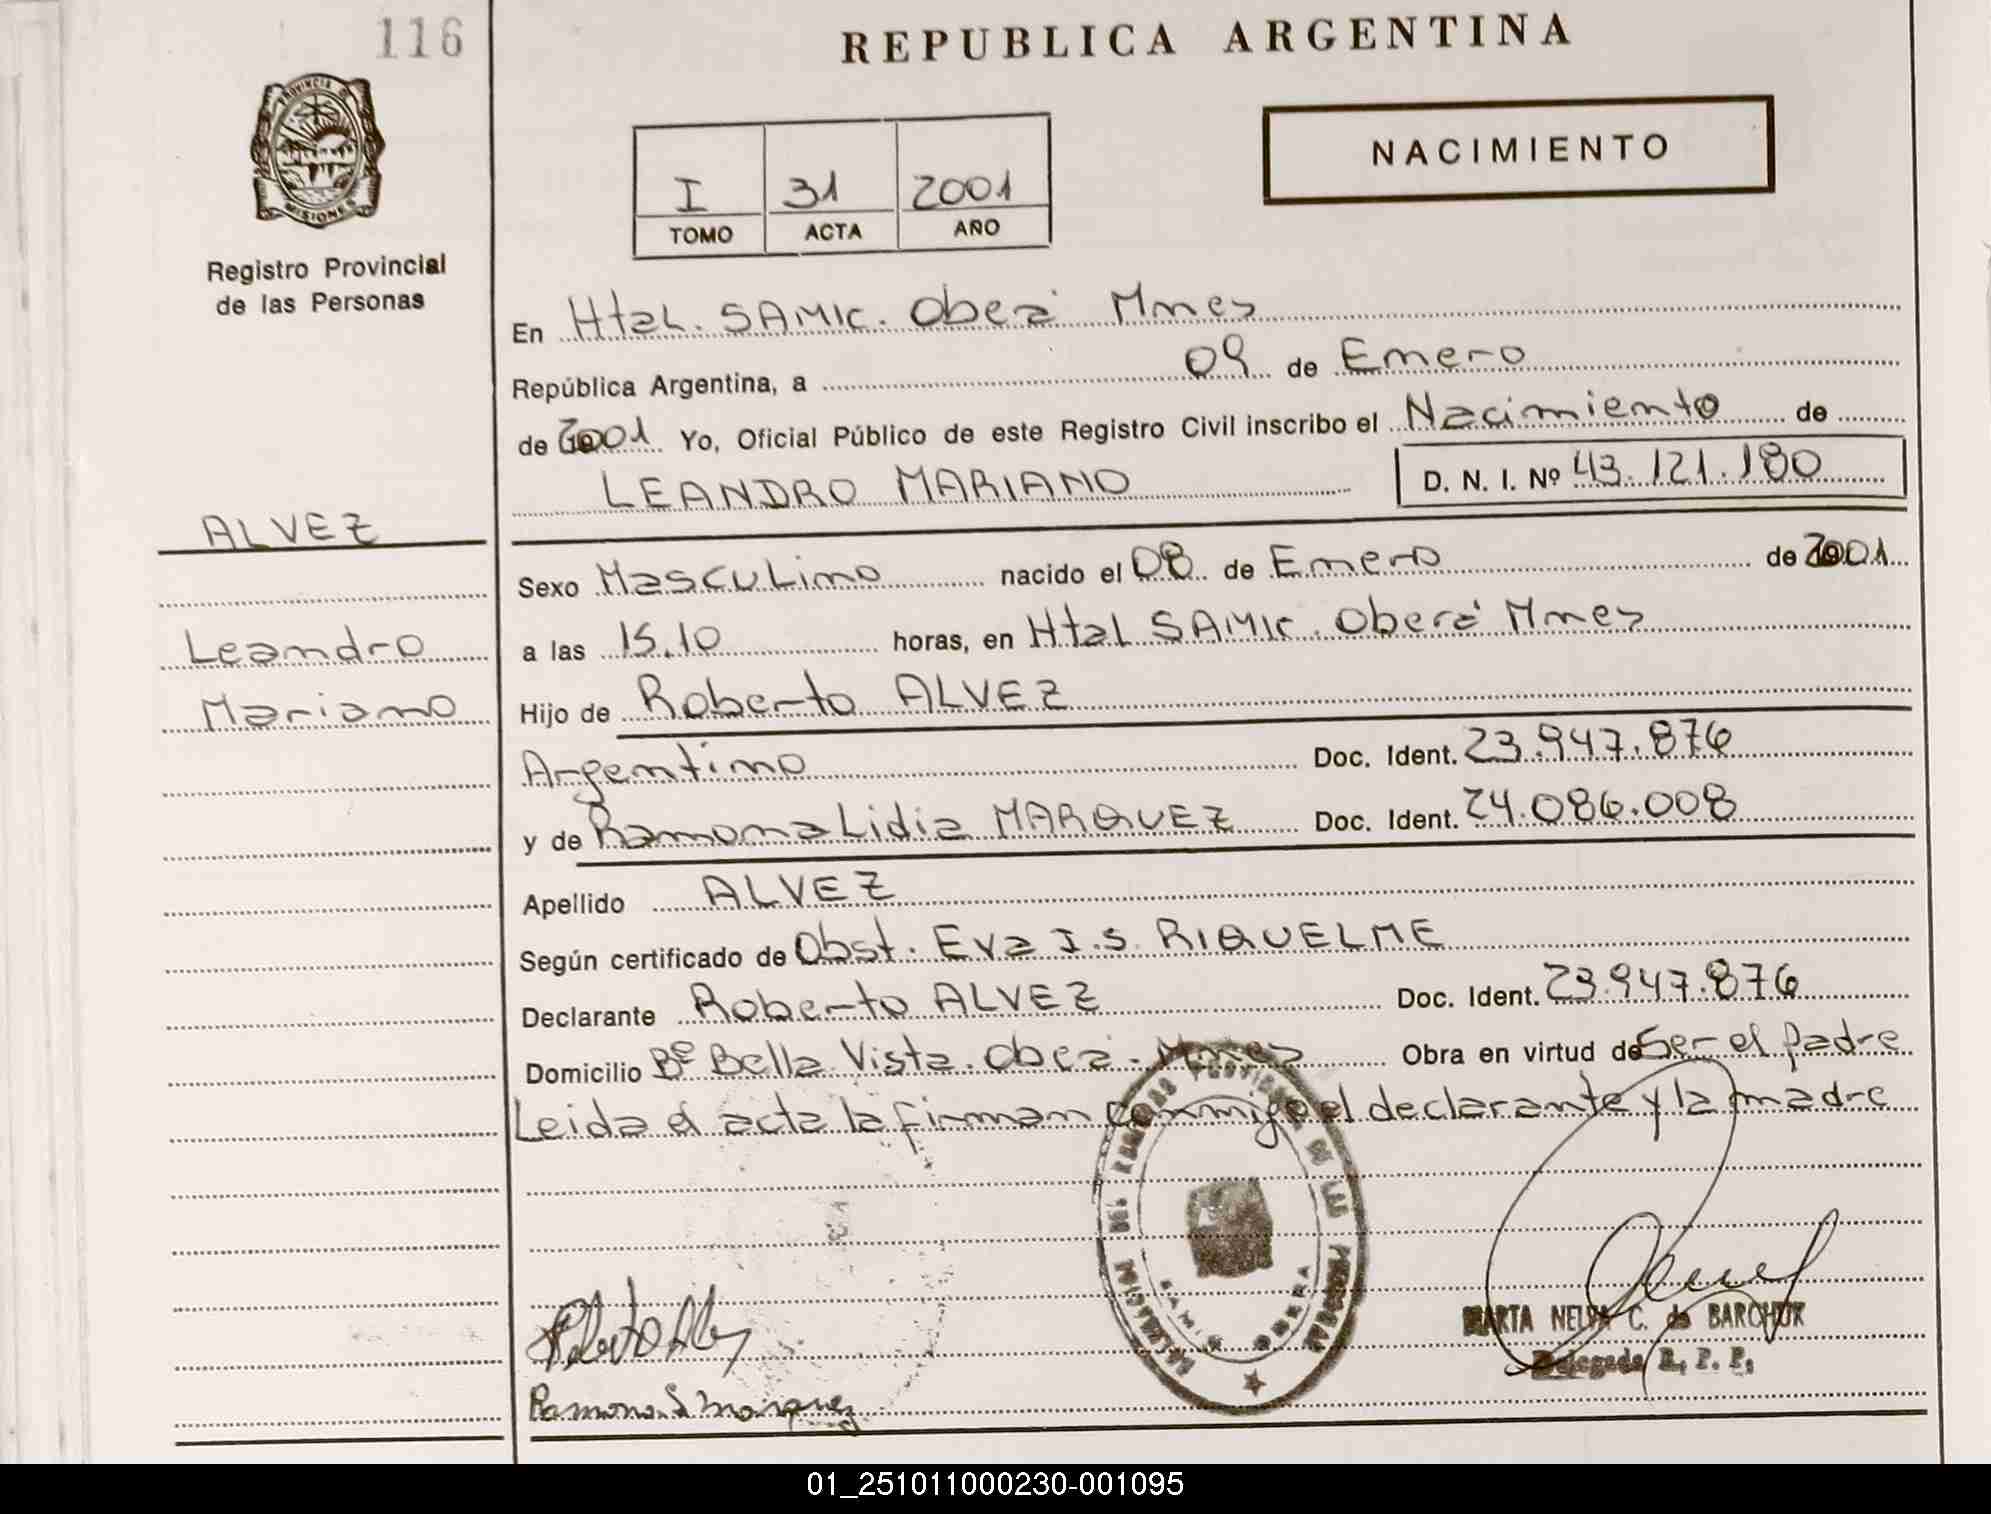 116
REPUBLICA ARGENTINA
PROVINCIA DE
MISIONES
NACIMIENTO
I 31 2001
TOMO ACTA AÑO
Registro Provincial
de las Personas
En Htal. SAMIC. Oberá Mnes
República Argentina, a 09 de Enero
de 2001 Yo, Oficial Público de este Registro Civil inscribo el Nacimiento de
LEANDRO MARIANO D. N. I. Nº 43.121.180
ALVEZ
Leandro
Mariano
Sexo Masculino nacido el 08 de Enero de 2001
a las 15.10 horas, en Htal SAMIC. Oberá Mnes
Hijo de Roberto ALVEZ
Argentino Doc. Ident. 23.947.876
y de Ramona Lidia MARQUEZ Doc. Ident. 24.086.008
Apellido ALVEZ
Según certificado de Obst. Eva I.S. RIQUELME
Declarante Roberto ALVEZ Doc. Ident. 23.947.876
Domicilio Bº Bella Vista. Oberá. Mnes Obra en virtud de Ser el padre
Leida el acta la firman conmigo el declarante y la madre
DELEGACION DEL REGISTRO PROVINCIAL DE LAS PERSONAS
OBERA
MARTA NELVA C. de BARCHUK
Delegada R. P. P.
Ramona L Marquez
01_251011000230-001095